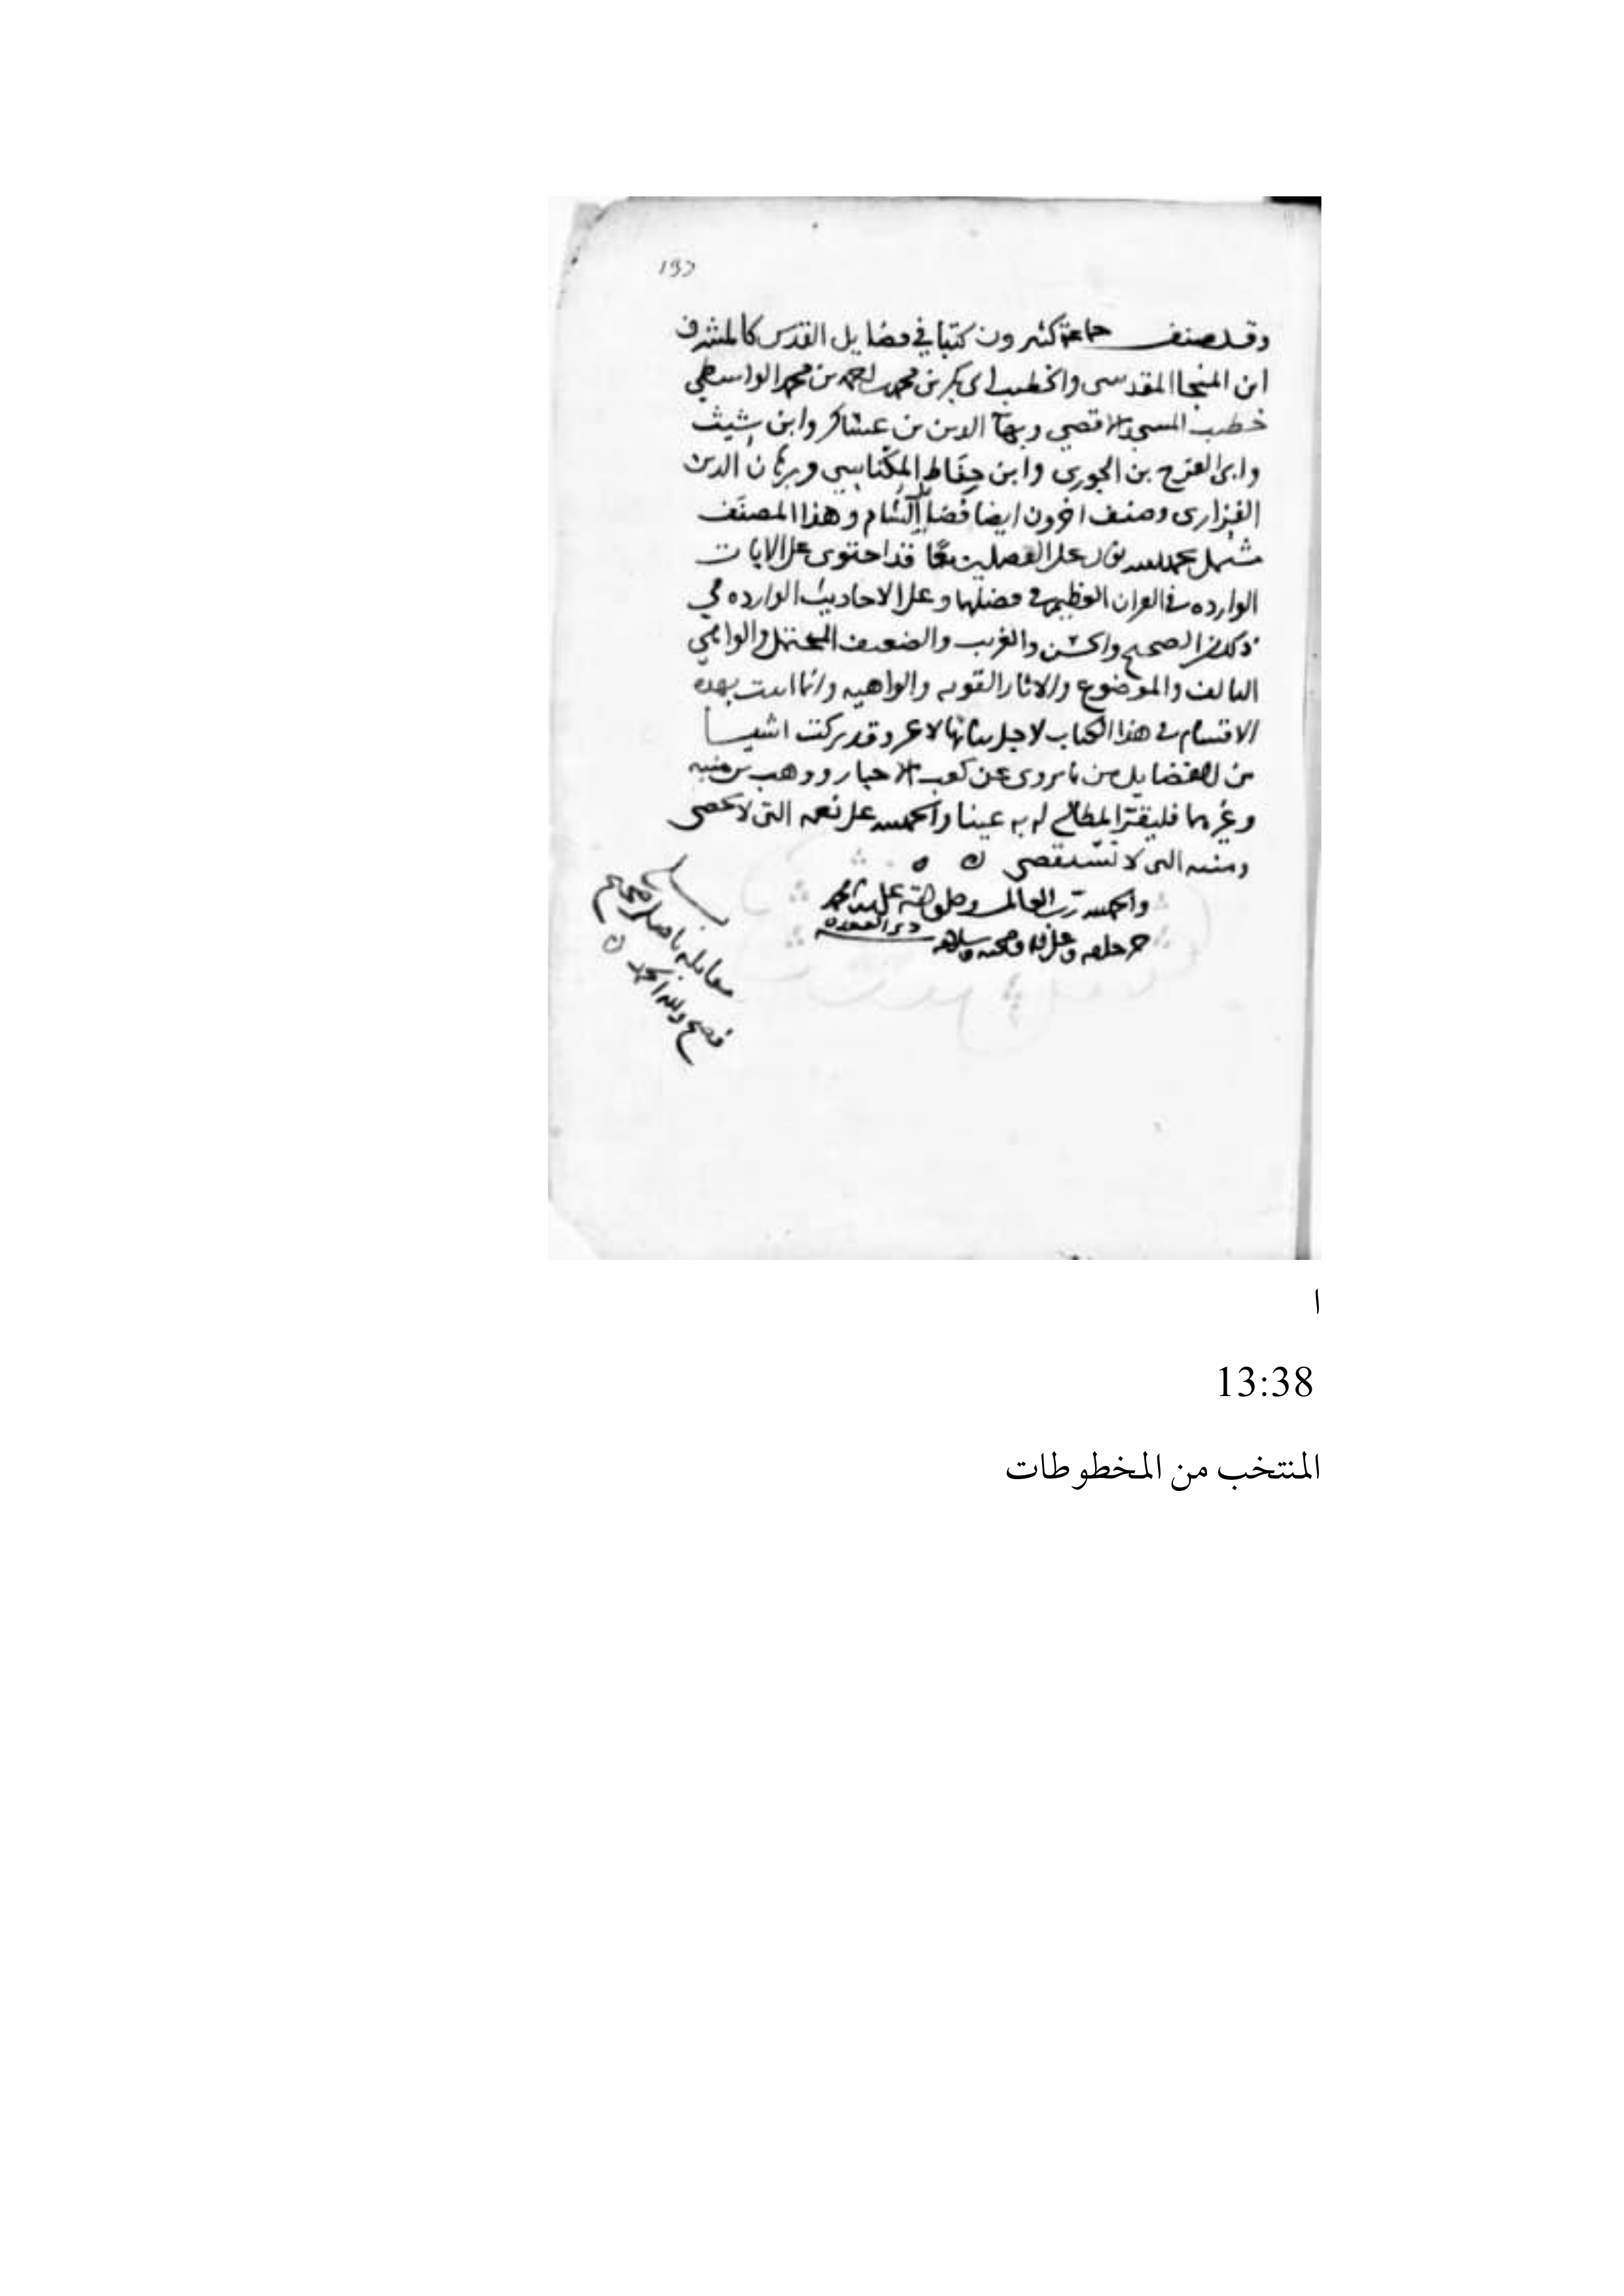 132
وقد صنف جماعة كثيرون كتبا في فضايل القدس كالمشرف
ابن المنجا المقدسي والخطيب ابي بكر بن محمد بن احمد بن محمد الواسطي
خطيب المسجد الاقصي وبهآ الدين بن عساكر وابن شيث
وابي الفرج بن الجوزي وابن حفاظ المكناسي وبرهان الدين
الفزاري وصنف اخرون ايضا فضايل الشام وهذا المصنف
مشتمل بحمد الله تعالى على الفصلين معًا قد احتوى على الايات
الوارده في القران العظيم في فضلها وعلى الاحاديث الوارده في
ذلك من الصحيح والحسن والغريب والضعيف المحتمل والواهي
التالف والموضوع والاثار القويه والواهيه وانما اتيت بهذه
الاقسام في هذا الكتاب لاجل بيانها لا غير وقد تركت اشيا
من الفضايل من ما يروى عن كعب الاحبار ووهب بن منبه
وغيرهما فليقرّ المطالع له به عينا والحمد لله على نعمه التي لا تحصى
ومننه التي لا تستقصى
والحمد لله رب العالمين وصلواته على سيدنا محمد
خير خلقه وعلى اله وصحبه وسلامه
بلغ
مقابلة باصل صحيح
فصح ولله الحمد
ا
13:38
المنتخب من المخطوطات